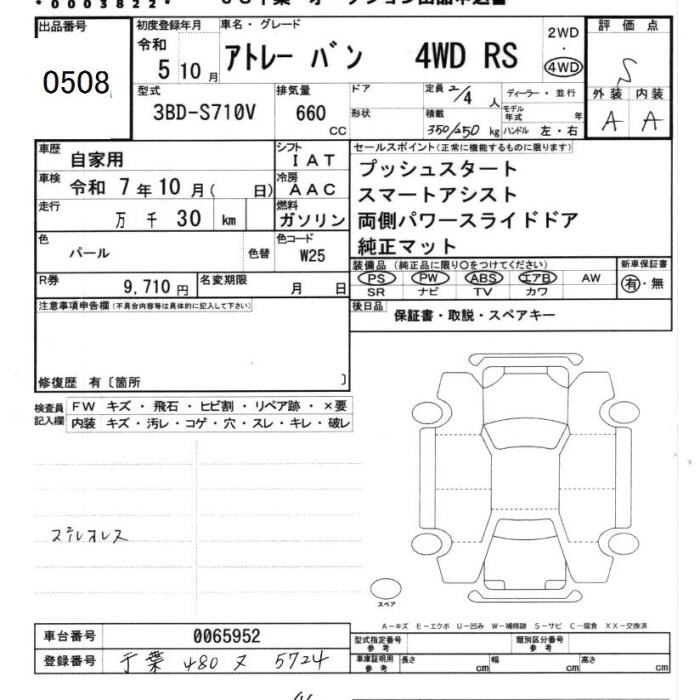 *0003822*
出品番号 初度登録年月 車名・グレード 2WD 評価点
0508 令和 5 10月 アトレー バン 4WD RS ・ 4WD S
型式 排気量 ドア 定員 2/4 人 ディーラー・並行 外装 内装
3BD-S710V 660 CC 形状 積載 350/250 kg モデル年式 年 ハンドル 左・右 A A
車歴 自家用 シフト IAT セールスポイント(正常に機能するものに限ります)
車検 令和 7年10月( 日) 冷房 AAC プッシュスタート
スマートアシスト
走行 万 千 30 km 燃料 ガソリン 両側パワースライドドア
色 パール 色替 色コード W25 純正マット
装備品(純正品に限り○をつけてください) 新車保証書
R券 9,710円 名変期限 月 日 PS PW ABS エアB AW 有・無
SR ナビ TV カワ
注意事項申告欄(不具合内容等は具体的に記入して下さい) 後日品 保証書・取説・スペアキー
修復歴 有〔箇所 〕
検査員記入欄 FW キズ・飛石・ヒビ割・リペア跡・×要
内装 キズ・汚レ・コゲ・穴・スレ・キレ・破レ
ステレオレス
スペア
A−キズ E−エクボ U−凹み W−補修跡 S−サビ C−腐食 XX−交換済
車台番号 0065952 型式指定番号 参考 類別区分番号 参考
登録番号 千葉 480 ヌ 5724 車庫証明用 参考 長さ cm 幅 cm 高さ cm